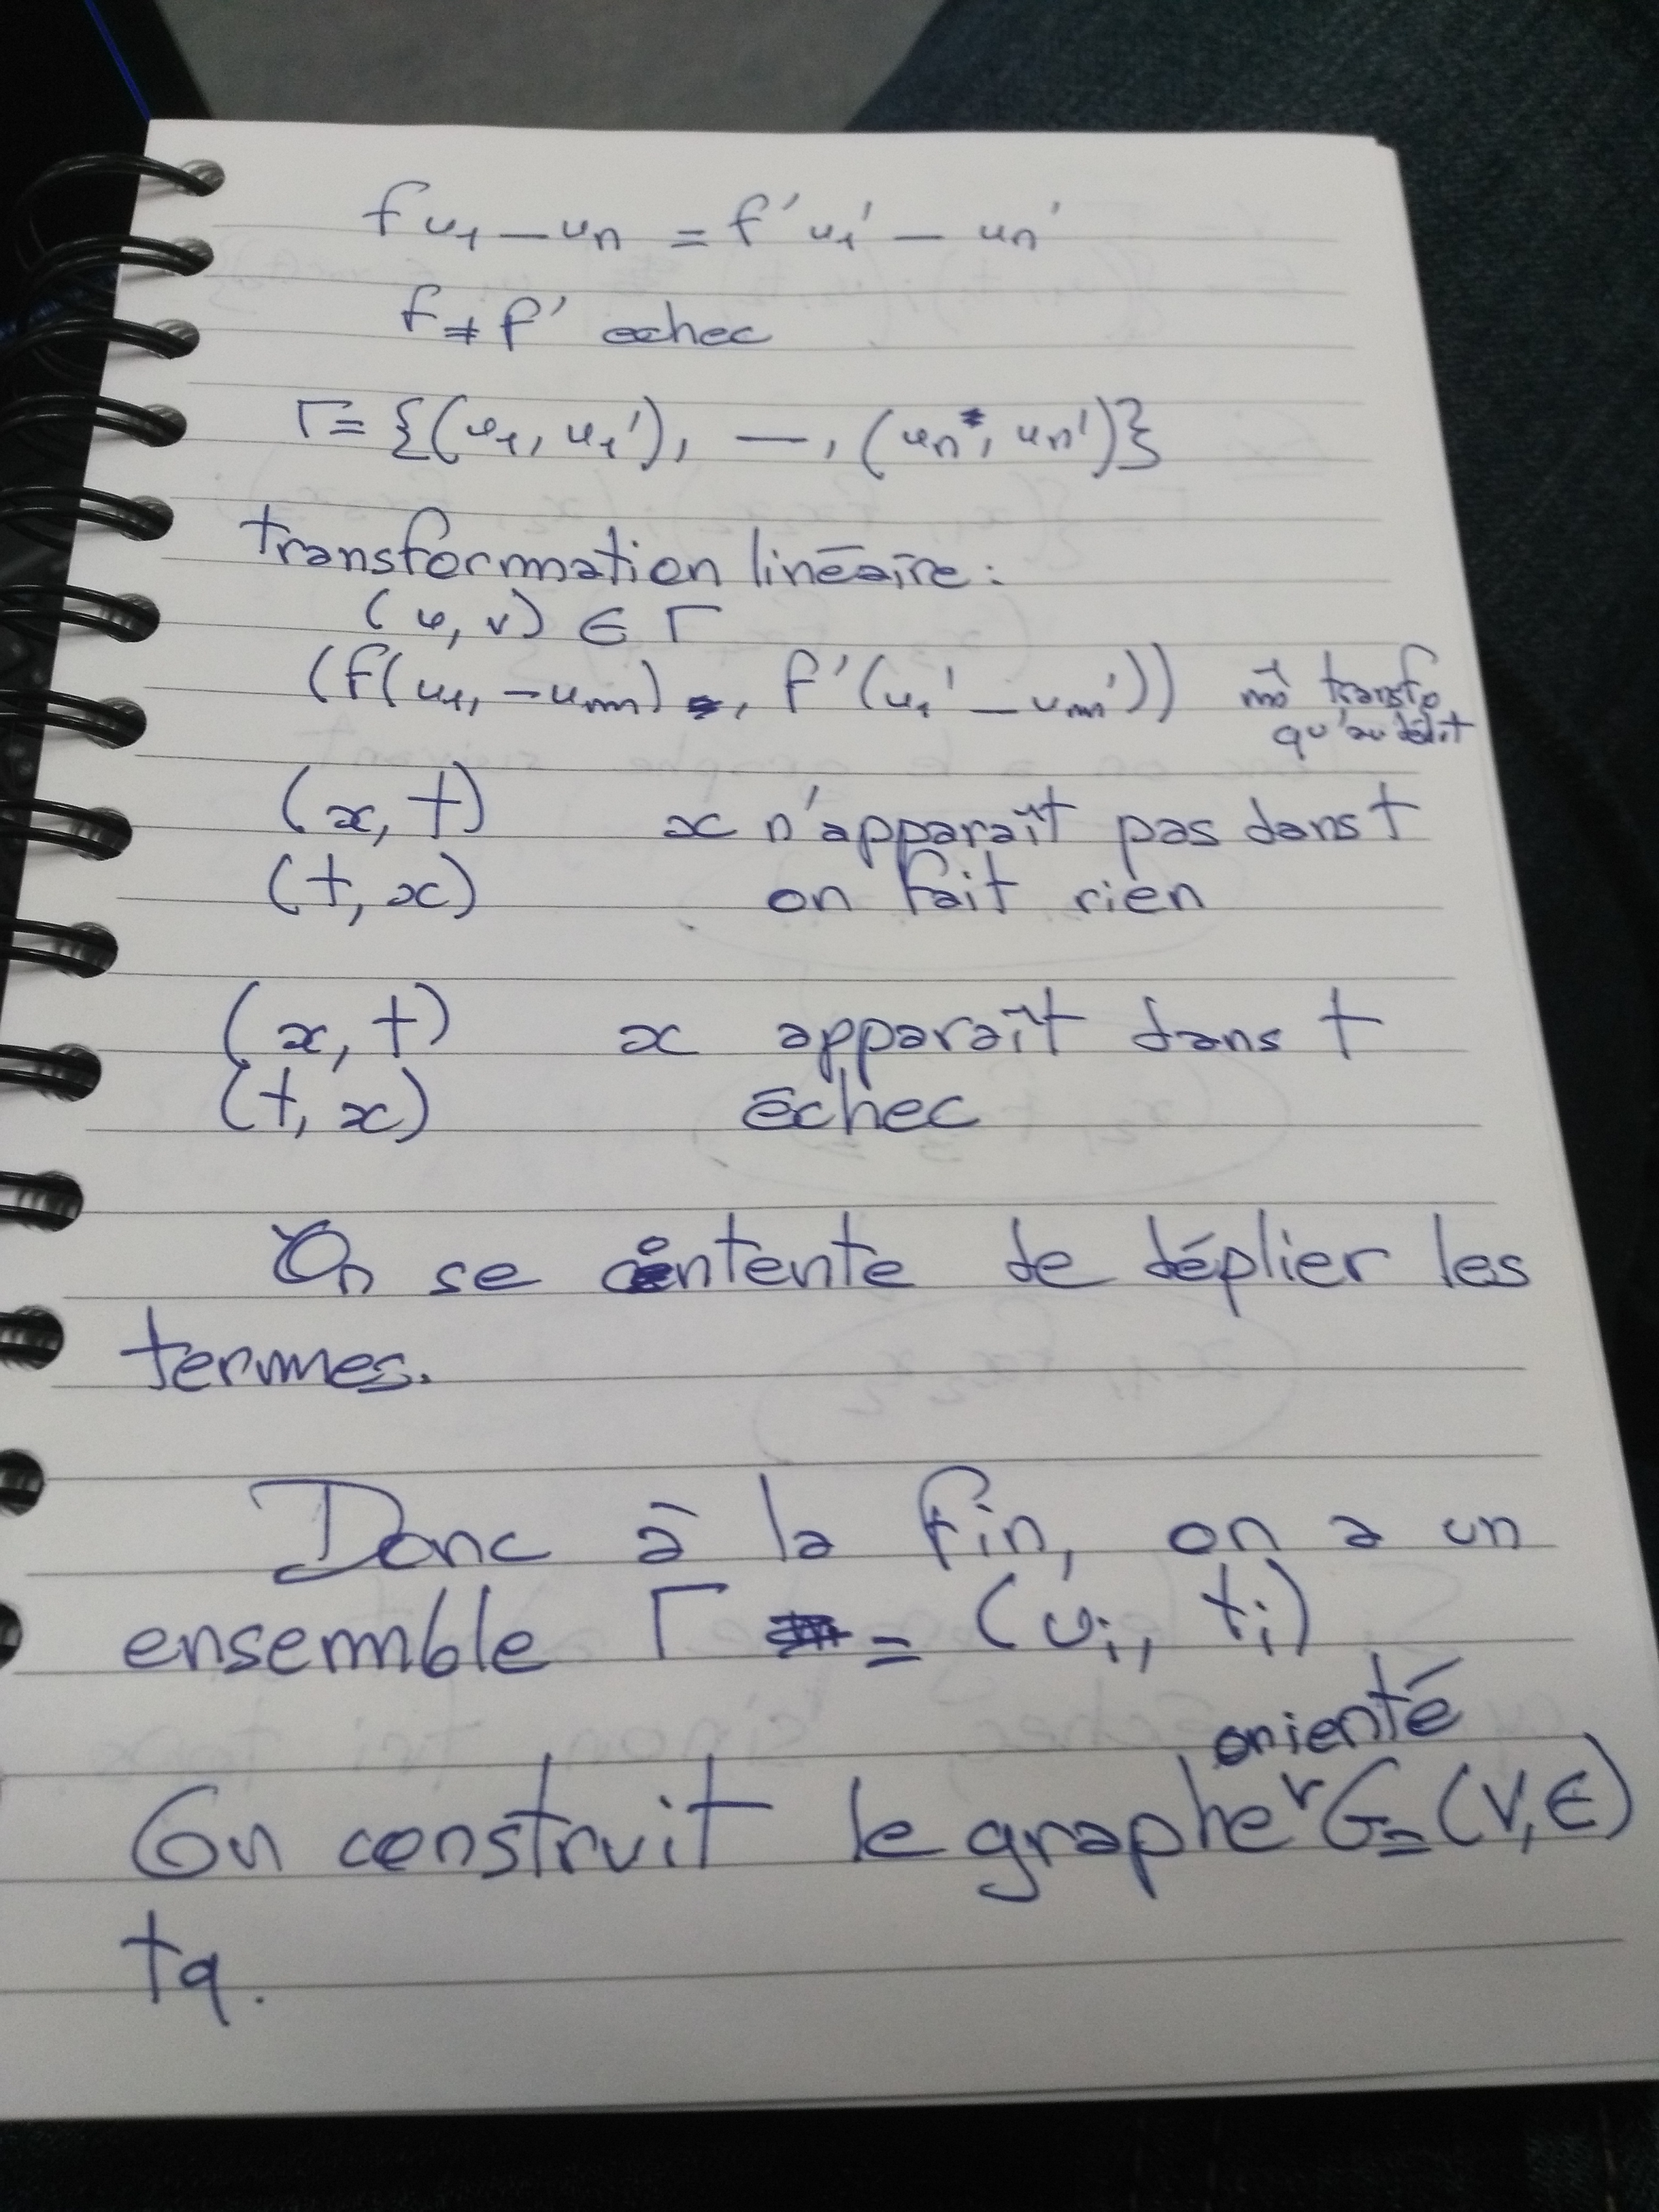 f u1 — un = f' u1' — un'
f ≠ f' echec
Γ = {(u1, u1'), —, (un, un')}
transformation linéaire :
(u, v) ∈ Γ
(f(u1, — um), f'(u1' — um')) m̂ transfo
qu'au début
(x, t) x n'apparaît pas dans t
(t, x) on fait rien
(x, t) x apparaît dans t
(t, x) échec
On se contente de déplier les
termes.
Donc à la fin, on a un
ensemble Γ = (vi, ti)
orienté
On construit le graphe G = (V, E)
tq.